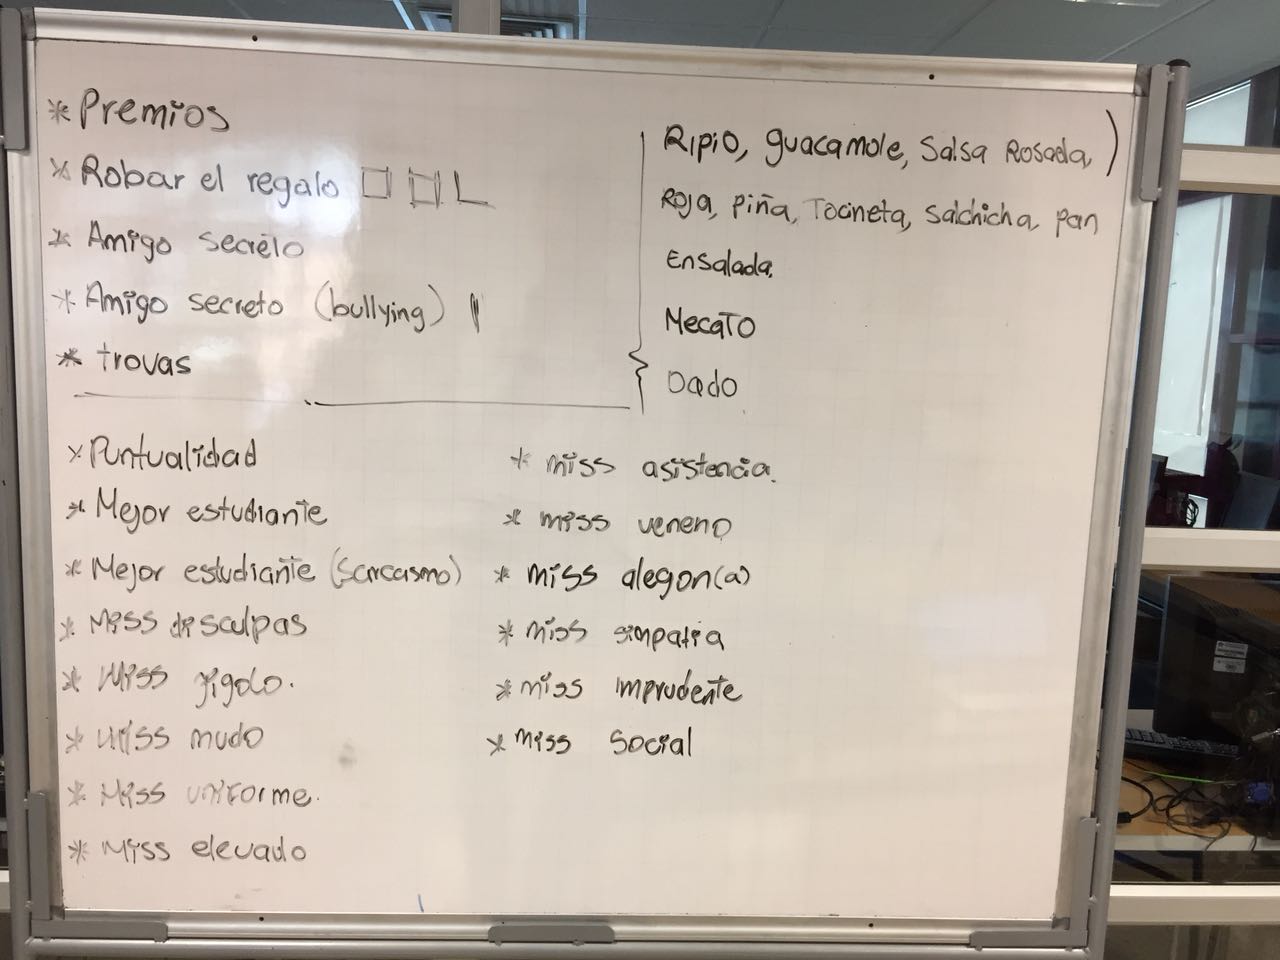 * Premios
* Robar el regalo
* Amigo secreto
* Amigo secreto (bullying)
* trovas
Ripio, guacamole, Salsa Rosada, )
Roja, piña, Tocineta, salchicha, pan
Ensalada.
Mecato
Dado
* Puntualidad
* Mejor estudiante
* Mejor estudiante (sarcasmo)
* Miss disculpas
* Miss jigolo.
* Miss mudo
* Miss uniforme.
* Miss elevado
* miss asistencia.
* miss veneno
* miss alegon(a)
* miss simpatia
* miss imprudente
* miss social